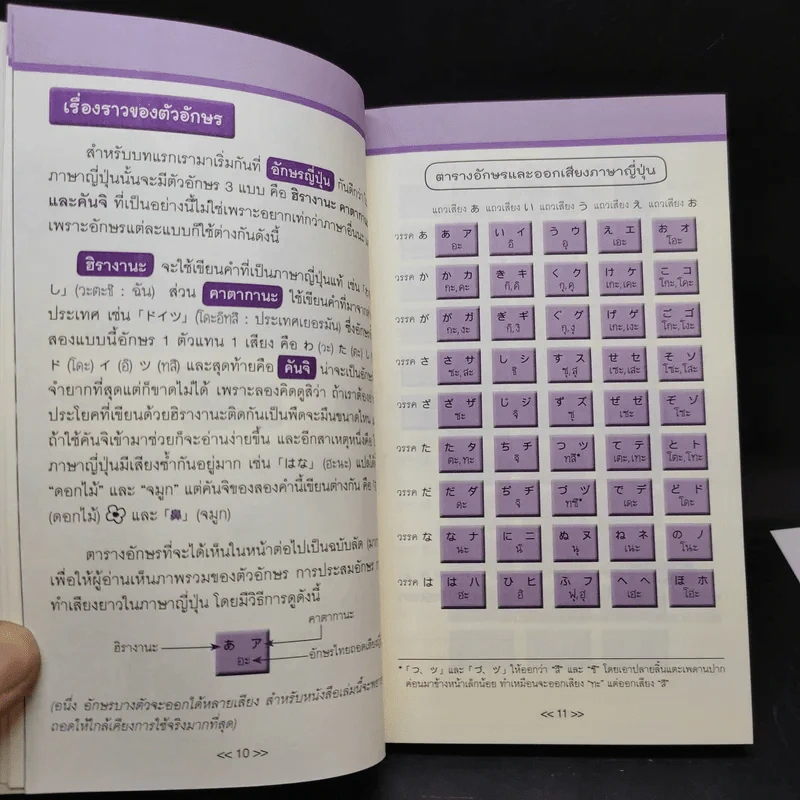 เรื่องราวของตัวอักษร
สำหรับบทแรกเรามาเริ่มกันที่ อักษรญี่ปุ่น กันดีกว่า
ภาษาญี่ปุ่นนั้นจะมีตัวอักษร 3 แบบ คือ ฮิรางานะ คาตากานะ
และคันจิ ที่เป็นอย่างนี้ไม่ใช่เพราะอยากเท่กว่าภาษาอื่นนะ
เพราะอักษรแต่ละแบบก็ใช้ต่างกันดังนี้
ฮิรางานะ จะใช้เขียนคำที่เป็นภาษาญี่ปุ่นแท้ เช่น
し」 (วะตะชิ : ฉัน) ส่วน คาตากานะ ใช้เขียนคำที่มาจาก
ประเทศ เช่น「ドイツ」 (โดะอิทสึ : ประเทศเยอรมัน) ซึ่งอักษร
สองแบบนี้อักษร 1 ตัวแทน 1 เสียง คือ わ (วะ) た (ตะ) し
ド (โดะ) イ (อิ) ツ (ทสึ) และสุดท้ายคือ คันจิ น่าจะเป็นอักษร
จำยากที่สุดแต่ก็ขาดไม่ได้ เพราะลองคิดดูสิว่า ถ้าเราต้อง
ประโยคที่เขียนด้วยฮิรางานะติดกันเป็นพืดจะมีนขนาดไหน
ถ้าใช้คันจิเข้ามาช่วยก็จะอ่านง่ายขึ้น และอีกสาเหตุหนึ่งคือ
ภาษาญี่ปุ่นมีเสียงซ้ำกันอยู่มาก เช่น「はな」 (ฮะนะ) แปลได้
“ดอกไม้” และ “จมูก” แต่คันจิของสองคำนี้เขียนต่างกัน คือ
(ดอกไม้) และ 「鼻」 (จมูก)
ตารางอักษรที่จะได้เห็นในหน้าต่อไปเป็นฉบับลัด
เพื่อให้ผู้อ่านเห็นภาพรวมของตัวอักษร การประสมอักษร
ทำเสียงยาวในภาษาญี่ปุ่น โดยมีวิธีการดูดังนี้
คาตากานะ
ฮิรางานะ あ ア
อะ อักษรไทยถอดเสียง
(อนึ่ง อักษรบางตัวจะออกได้หลายเสียง สำหรับหนังสือเล่มนี้จะ
ถอดให้ใกล้เคียงการใช้จริงมากที่สุด)
<< 10 >>
ตารางอักษรและออกเสียงภาษาญี่ปุ่น
แถวเสียง あ แถวเสียง い แถวเสียง う แถวเสียง え แถวเสียง お
วรรค あ あ ア い イ う ウ え エ お オ
อะ อิ อุ เอะ โอะ
วรรค か か カ き キ く ク け ケ こ コ
กะ,คะ กิ,คิ กุ,คุ เกะ,เคะ โกะ,โคะ
วรรค が が ガ ぎ ギ ぐ グ げ ゲ ご ゴ
กะ,งะ กิ,งิ กุ,งุ เกะ,เงะ โกะ,โงะ
วรรค さ さ サ し シ す ス せ セ そ ソ
ซะ,สะ ชิ ซุ,สุ เซะ,เสะ โซะ,โสะ
วรรค ざ ざ ザ じ ジ ず ズ ぜ ゼ ぞ ゾ
ซะ จิ ซุ เซะ โซะ
วรรค た た タ ち チ つ ツ て テ と ト
ตะ,ทะ จิ ทสึ* เตะ,เทะ โตะ,โทะ
วรรค だ だ ダ ぢ ヂ づ ヅ で デ ど ド
ดะ จิ ทซึ* เดะ โดะ
วรรค な な ナ に ニ ぬ ヌ ね ネ の ノ
นะ นิ นุ เนะ โนะ
วรรค は は ハ ひ ヒ ふ フ へ ヘ ほ ホ
ฮะ ฮิ ฟุ,ฮุ เฮะ โฮะ
*「つ, ツ」 และ 「づ, ヅ」 ให้ออกว่า “สึ” และ “ซึ” โดยเอาปลายลิ้นแตะเพดานปาก
ค่อนมาข้างหน้าเล็กน้อย ทำเหมือนจะออกเสียง “ทะ” แต่ออกเสียง “สึ”
<< 11 >>